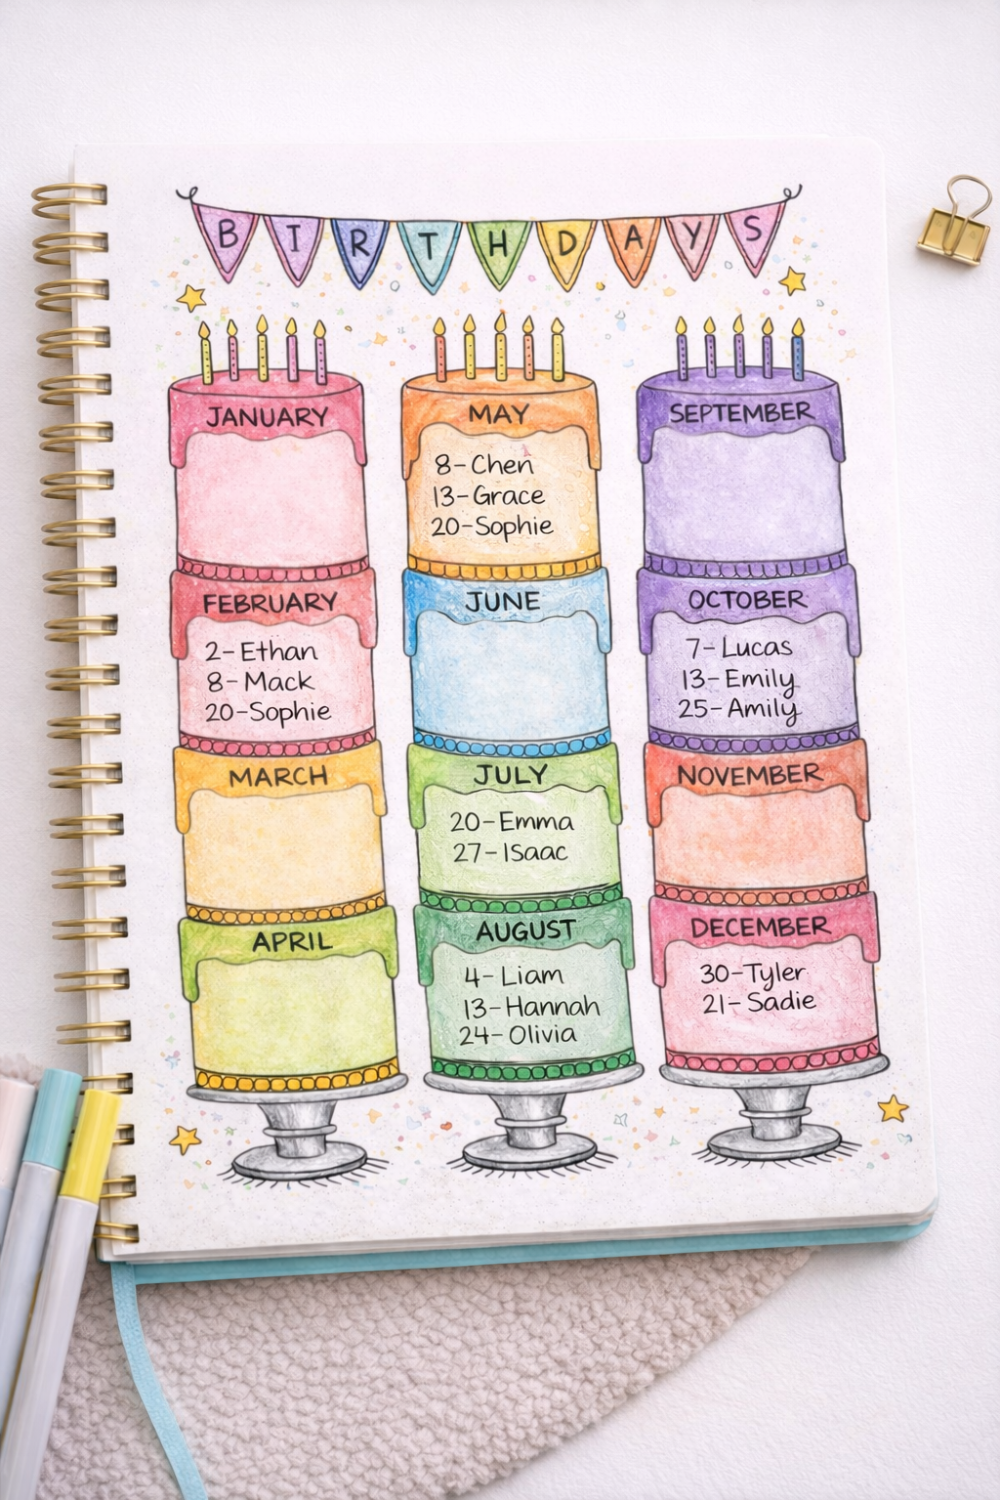 BIRTHDAYS
JANUARY
FEBRUARY
2-Ethan
8-Mack
20-Sophie
MARCH
APRIL
MAY
8-Chen
13-Grace
20-Sophie
JUNE
JULY
20-Emma
27-ISaac
AUGUST
4-Liam
13-Hannah
24-Olivia
SEPTEMBER
OCTOBER
7-Lucas
13-Emily
25-Amily
NOVEMBER
DECEMBER
30-Tyler
21-Sadie